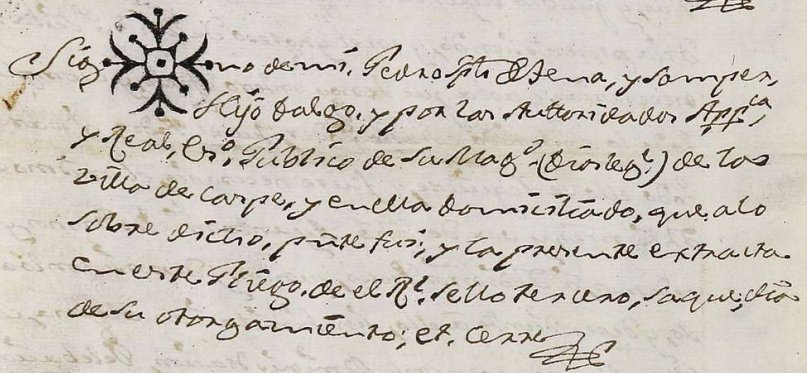 Sig no de mi, Pedro Sta Elena, y Samper,
Hijo dalgo, y por las Authoridades App.ca,
y Real, Es.no Publico de su Mag.d (Dios le g.e) de la
villa de Caspe, y en ella domiciliado, que a lo
sobre dicho, pnte fui, y la presente extracta
en este Pliego, de el R.l sello tercero, saque, dia
de su otorgamiento; et. cerre